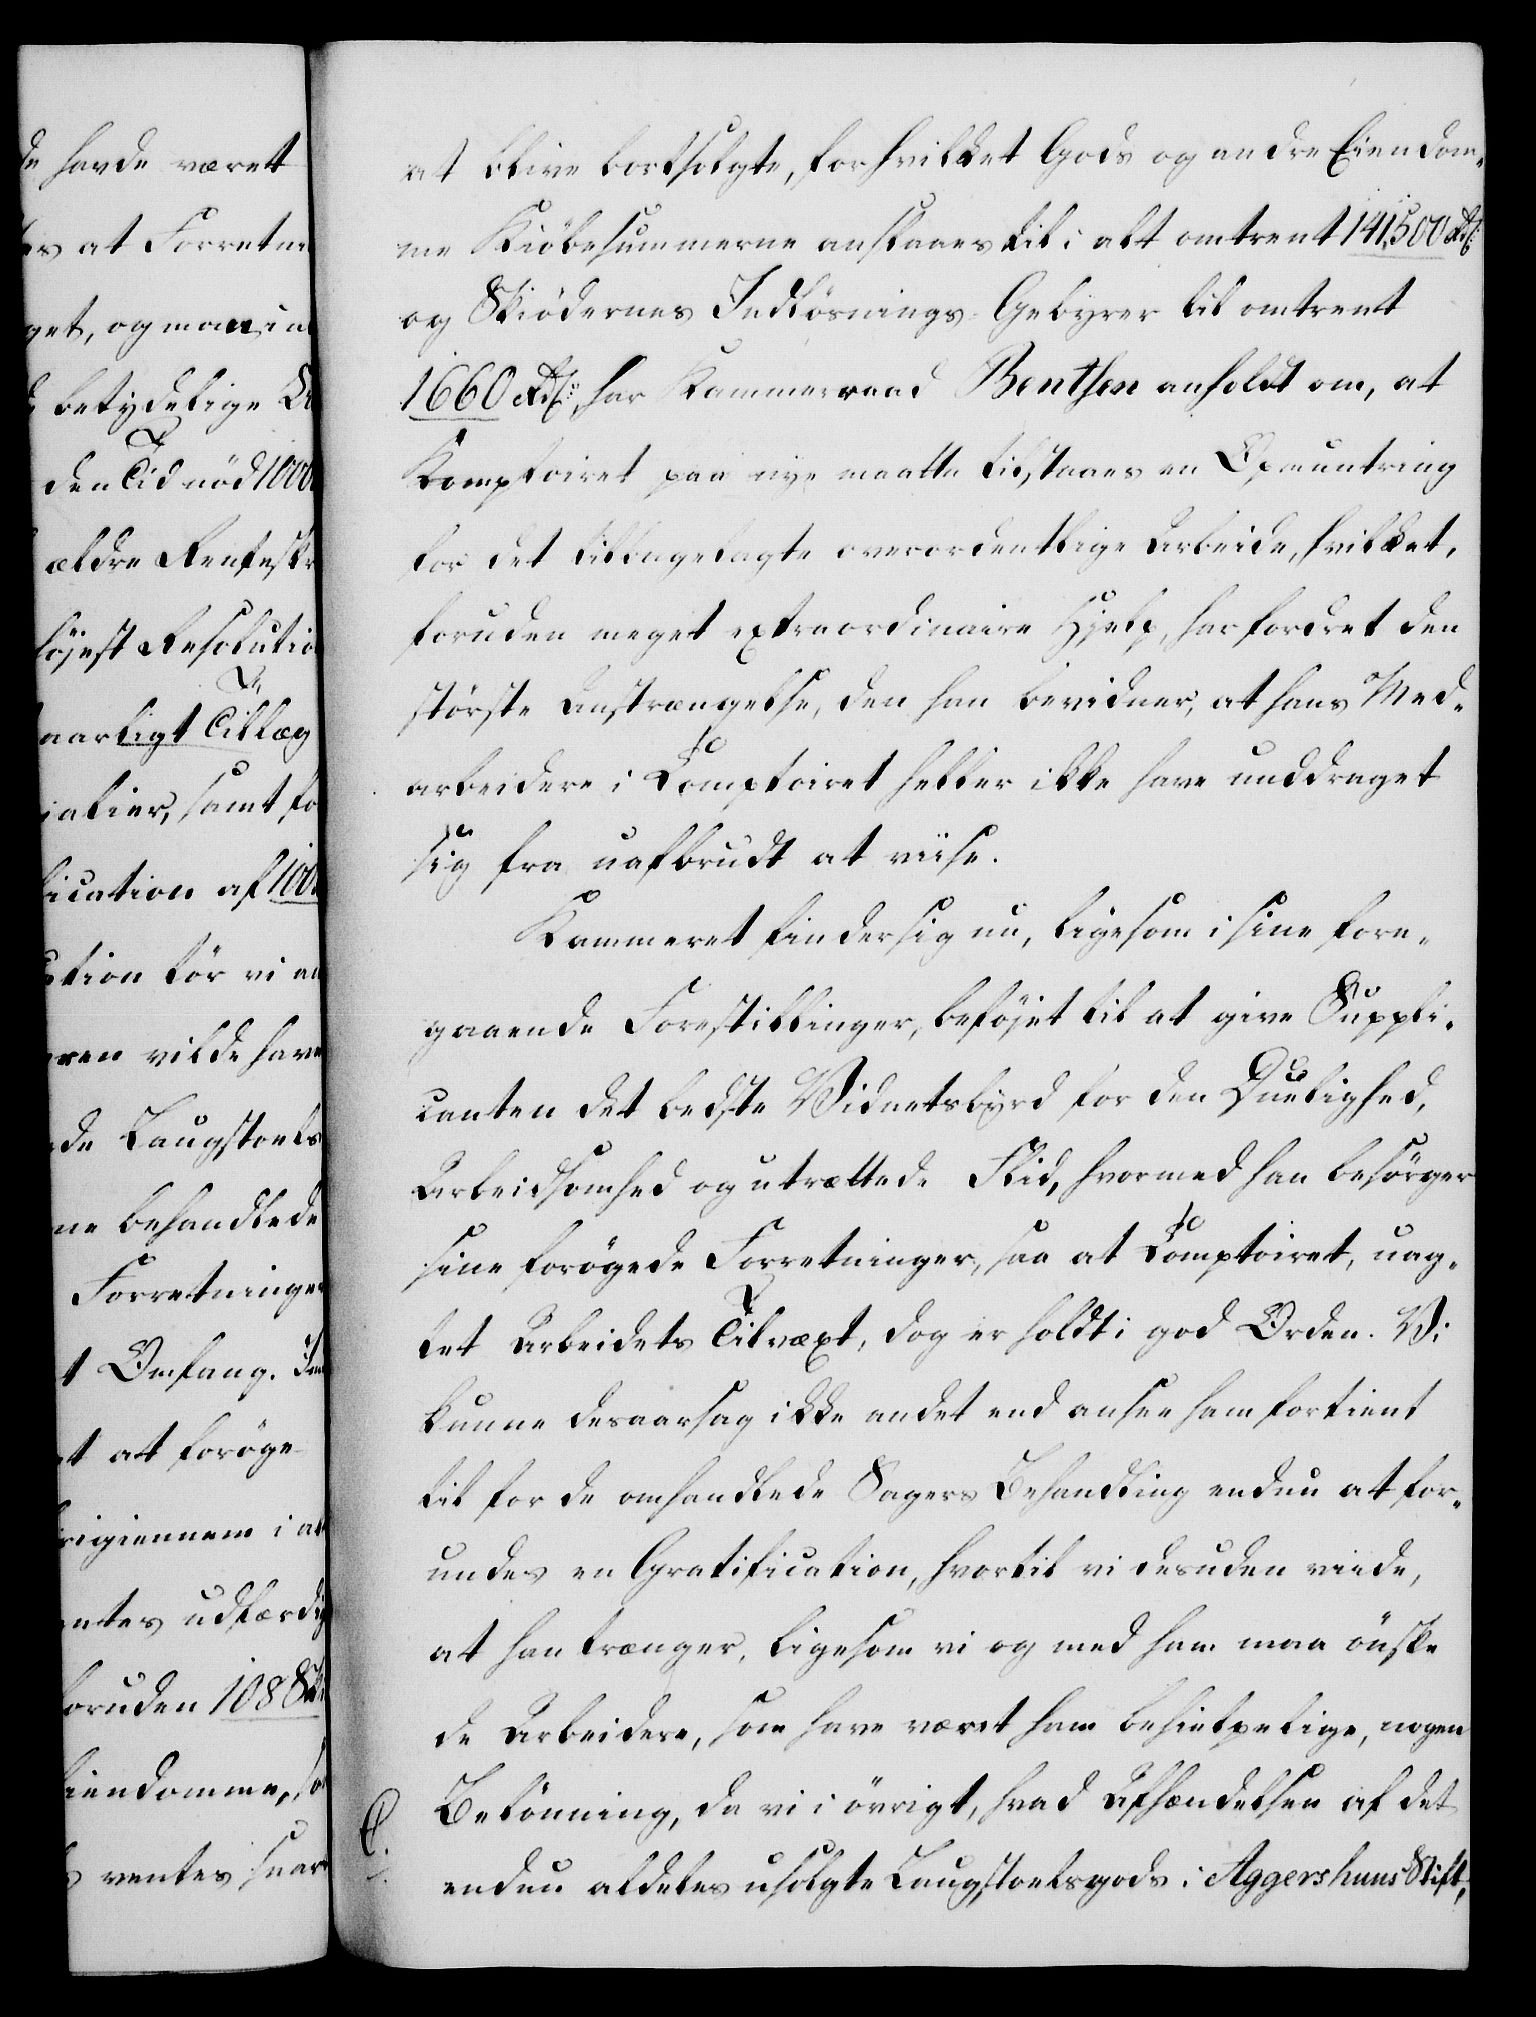 de havde været
es at Forretni
get, og man in
betydelige
den Tid nød 1000
ældre Rentesk
höjest Resolutio
aarligt Tillæg
ialier, samt fo
ication af 100
ution tör vi
ren vilde have
de Laugstoels
ne behandlede
Forretninger
t Omfang.
t at foröge
igiennem i al
ntes udfærdig
oruden 108 Sk
iendomme, so
s ventes snar
at blive bortsolgte, for hvilket Gods og andre Eiendom-
me Kiöbesummerne anslaaes til i alt omtrent 141,500 Rd.
og Skiödernes Indlösnings-Gebyrer til omtrent
1660 Rd., har Kammerraad Benthen anholdt om, at
Komptoiret paa nye maatte tilstaaes en Opmuntring
for det tilbagelagte overordentlige Arbeide, hvilket,
foruden meget extraordinaire Hjelp, har fordret den
störste Anstrængelse, den han bevidner, at hans Med-
arbeidere i Comptoiret heller ikke have unddraget
sig fra uafbrudt at viise.
Kammeret finder sig nu, ligesom i sine fore-
gaaende Forestillinger, beföjet til at give Suppli-
canten det bedste Vidnetsbyrd for den Duelighed,
Arbeidsomhed og utrættede Flid, hvormed han besörger
sine forögede Forretninger, saa at Comptoiret, uag-
tet Arbeidets Tilvæxt, dog er holdt i god Orden. Vi
kunne desaarsag ikke andet end ansee ham fortient
til for de omhandlede Sagers Behandling endnu at for-
undes en Gratification, hvortil vi desuden viide,
at han trænger, ligesom vi og med ham maa önske
de Arbeidere, som have været ham behielpelige, nogen
Belönning, da vi i övrigt, hvad Afhændelsen af det
endnu aldeles usolgte Laugstoelsgods i Aggershuus Stift,